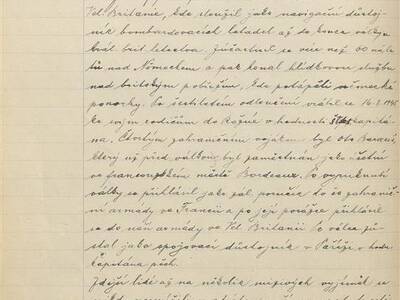 Vel. Britanie, kde sloužil jako navigační důstoj-
ník bombardovacích letadel až do konce války
král. brit. letectva. Zúčastnil se více než 60 nále-
tů nad Německem a pak konal hlídkovou službu
nad britským pobřežím, kde potápěli německé
ponorky. Po šestiletém odloučení vrátil se
ke svým rodičům do v hodnosti kapitá-
na. Čtvrtým zahraničním vojákem byl Oto
který už před válkou byl zaměstnán jako
ve francouzském městě Bordeaux. Po vypuknutí
války se přihlásil jako do čs. zahranič-
ní armády ve Francii a po její porážce přihlásil
se do naší armády ve Vel. Britanii. Po válce zů-
stal jako spojovací důstojník v Paříži v hodn.
kapitána pěch.
Zdejší lidé až na několik výjimek se